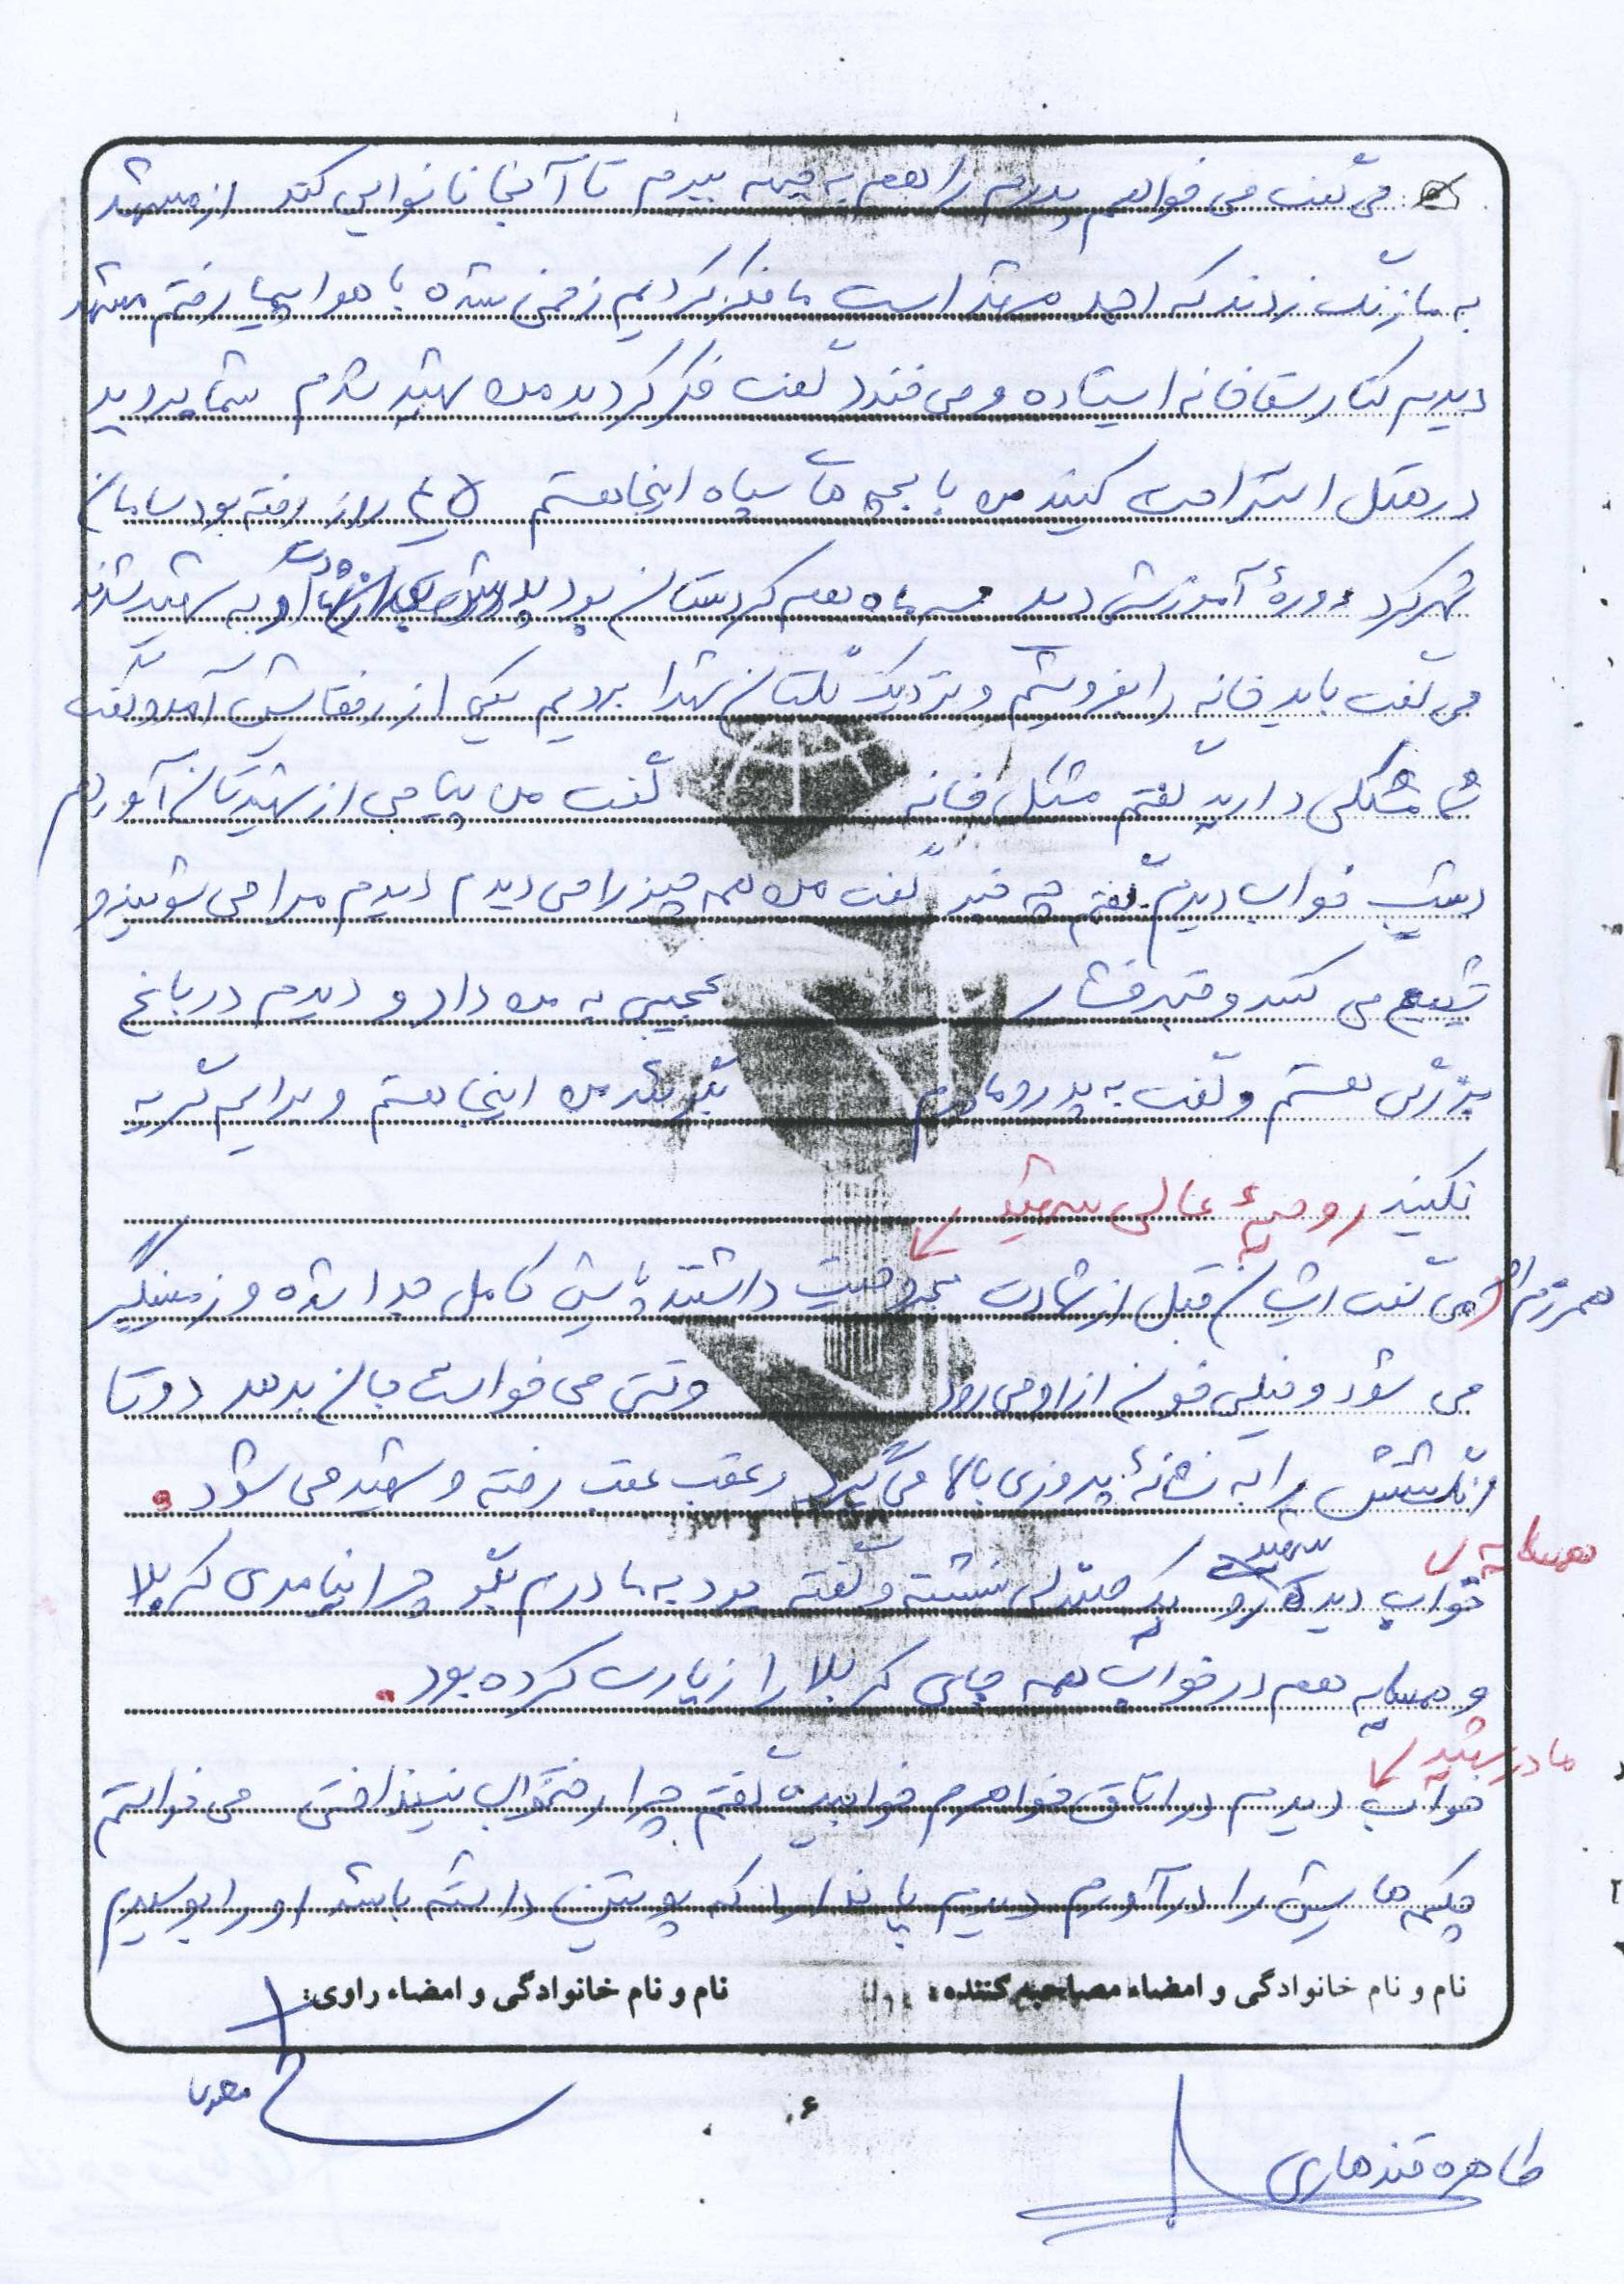 می گفت می خواهم پدرم را هم به جبهه ببرم تا آنجا نانوایی کند از مشهد
به ما زنگ زدند که احمد مشهد است ما فکر کردیم زخمی شده با هواپیما رفتم مشهد
دیدم کنار سقاخانه ایستاده و می خندد گفت فکر کردید من شهید شدم شما بروید
در هتل استراحت کنید من با بچه های سپاه اینجا هستم ۴۵ روز رفته بود سامان
شهرکرد دوره آموزشی دید سه ماه هم کردستان بود به شهید شدند
می گفت باید خانه را بفروشم و نزدیک گلستان شهدا برویم یکی از رفقایش آمد و گفت
شما مشکلی دارید گفتم مشکل خانه گفت من پیامی از شهیدتان آوردم
دیشب خواب دیدم گفتم چه خبر گفت من همه چیز را می دیدم دیدم مرا می شویند و
تشییع می کنند و قبر فشار عجیبی به من داد و دیدم در باغ
بزرگی هستم و گفت به پدر و مادرم بگوئید من اینجا هستم و برایم گریه
نکنید روحیهٔ عالی شهید
همرزم او می گفت ایشان قبل از شهادت مجروحیت داشتند پایش کامل جدا شده و زمینگیر
می شود و خیلی خون از او می رود وقتی می خواست جان بدهد دو تا
انگشتش را به نشانهٔ پیروزی بالا می گیرد و عقب عقب رفته و شهید می شود.
همسایه ی شهید
خواب دیده که رو یک صندلی نشسته و گفته بود به مادرم بگو چرا نیامدی کربلا
و همسایه هم در خواب همه جای کربلا را زیارت کرده بود.
مادر شهید
خواب دیدم در اتاق خواهرم خوابیده گفتم چرا رختخواب نینداختی می خواستم
چکمه هایش را در آورم دیدم پا ندارد که پوتین داشته باشد او را بوسیدم
نام و نام خانوادگی و امضاء مصاحبه کننده: نام و نام خانوادگی و امضاء راوی:
۶
طاهره قندهاری